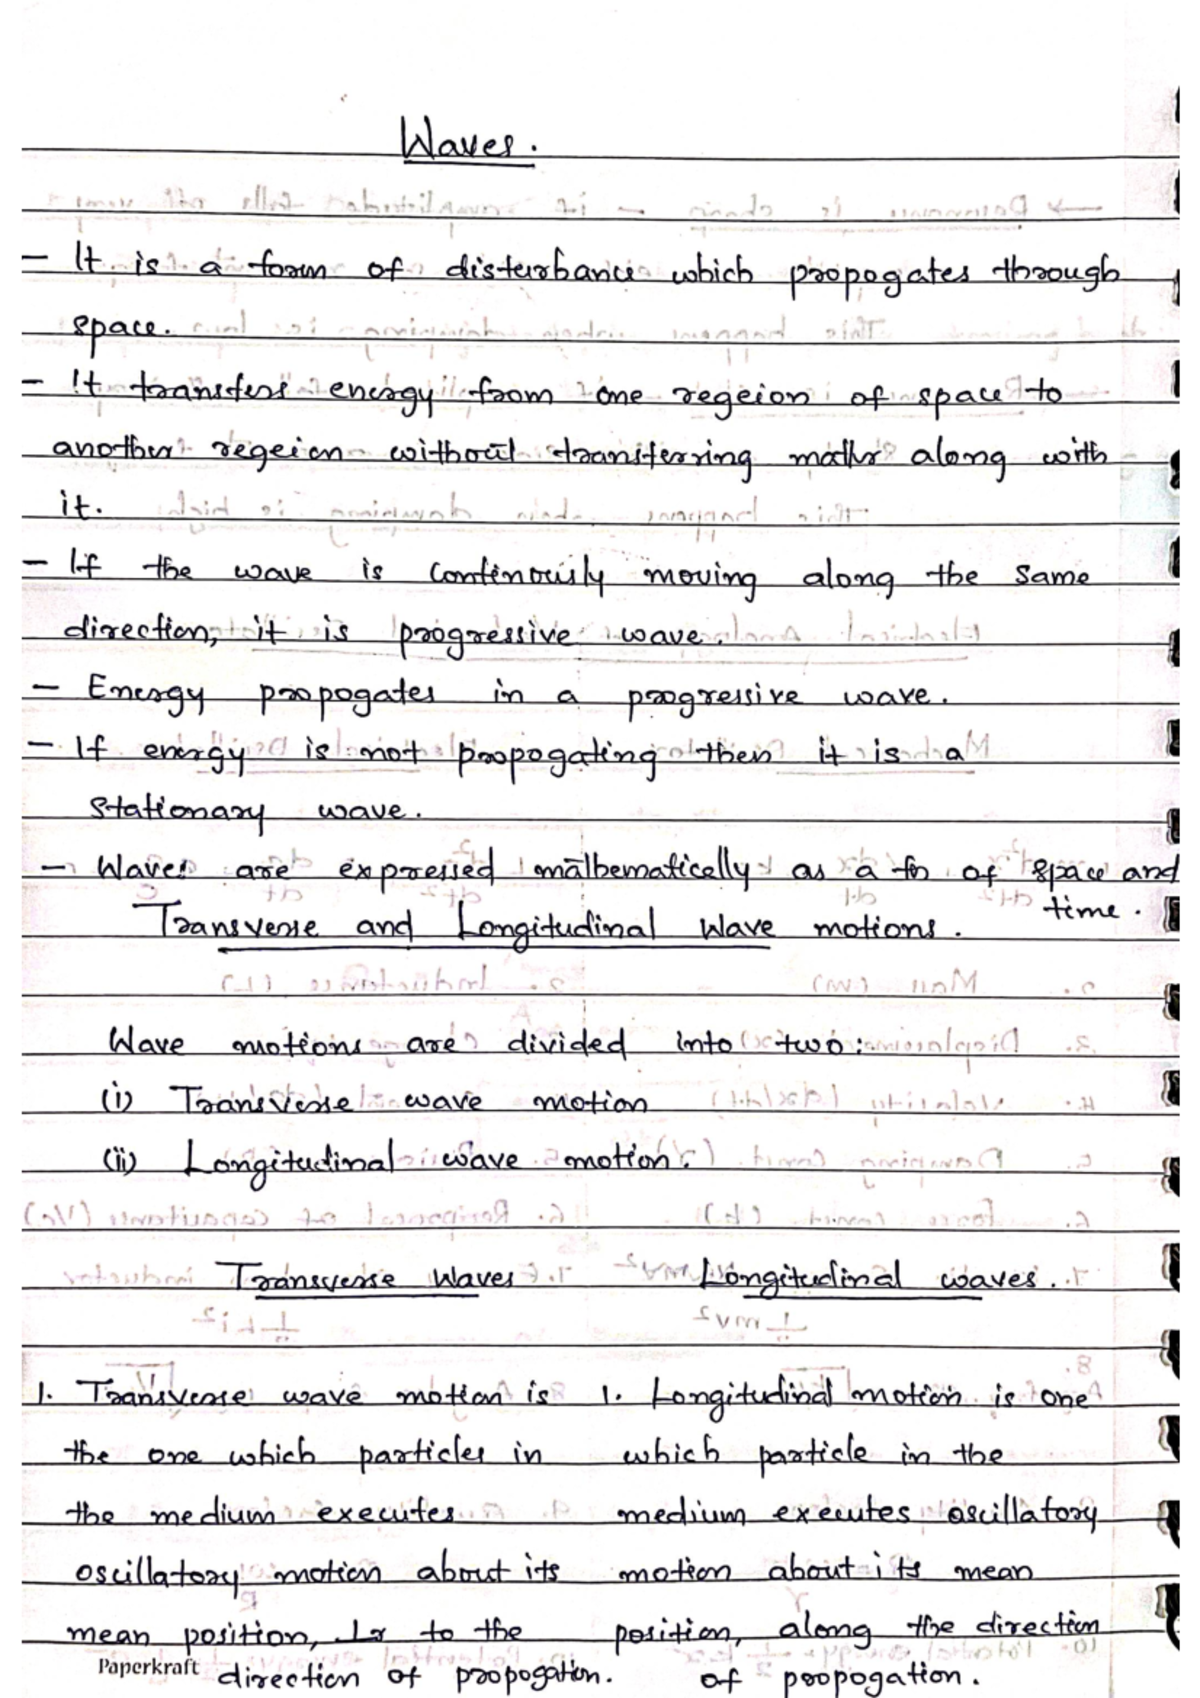 Waves.
- It is a form of disturbance which propogates through
space.
- It transfers energy from one regeion of space to
another regeion without transferring matter along with
it.
- If the wave is continously moving along the same
direction, it is progressive wave.
- Energy propogates in a progressive wave.
- If energy is not propogating then it is a
stationary wave.
- Waves are expressed mathematically as a fn of space and
time.
Transverse and Longitudinal Wave motions.
Wave motions are divided into two:
(i) Transverse wave motion
(ii) Longitudinal wave motion.
Transverse Waves Longitudinal waves.
1. Transverse wave motion is 1. Longitudinal motion is one
the one which particles in which particle in the
the medium executes medium executes oscillatory
oscillatory motion about its motion about its mean
mean position, ⊥r to the position, along the direction
direction of propogation. of propogation.
Paperkraft